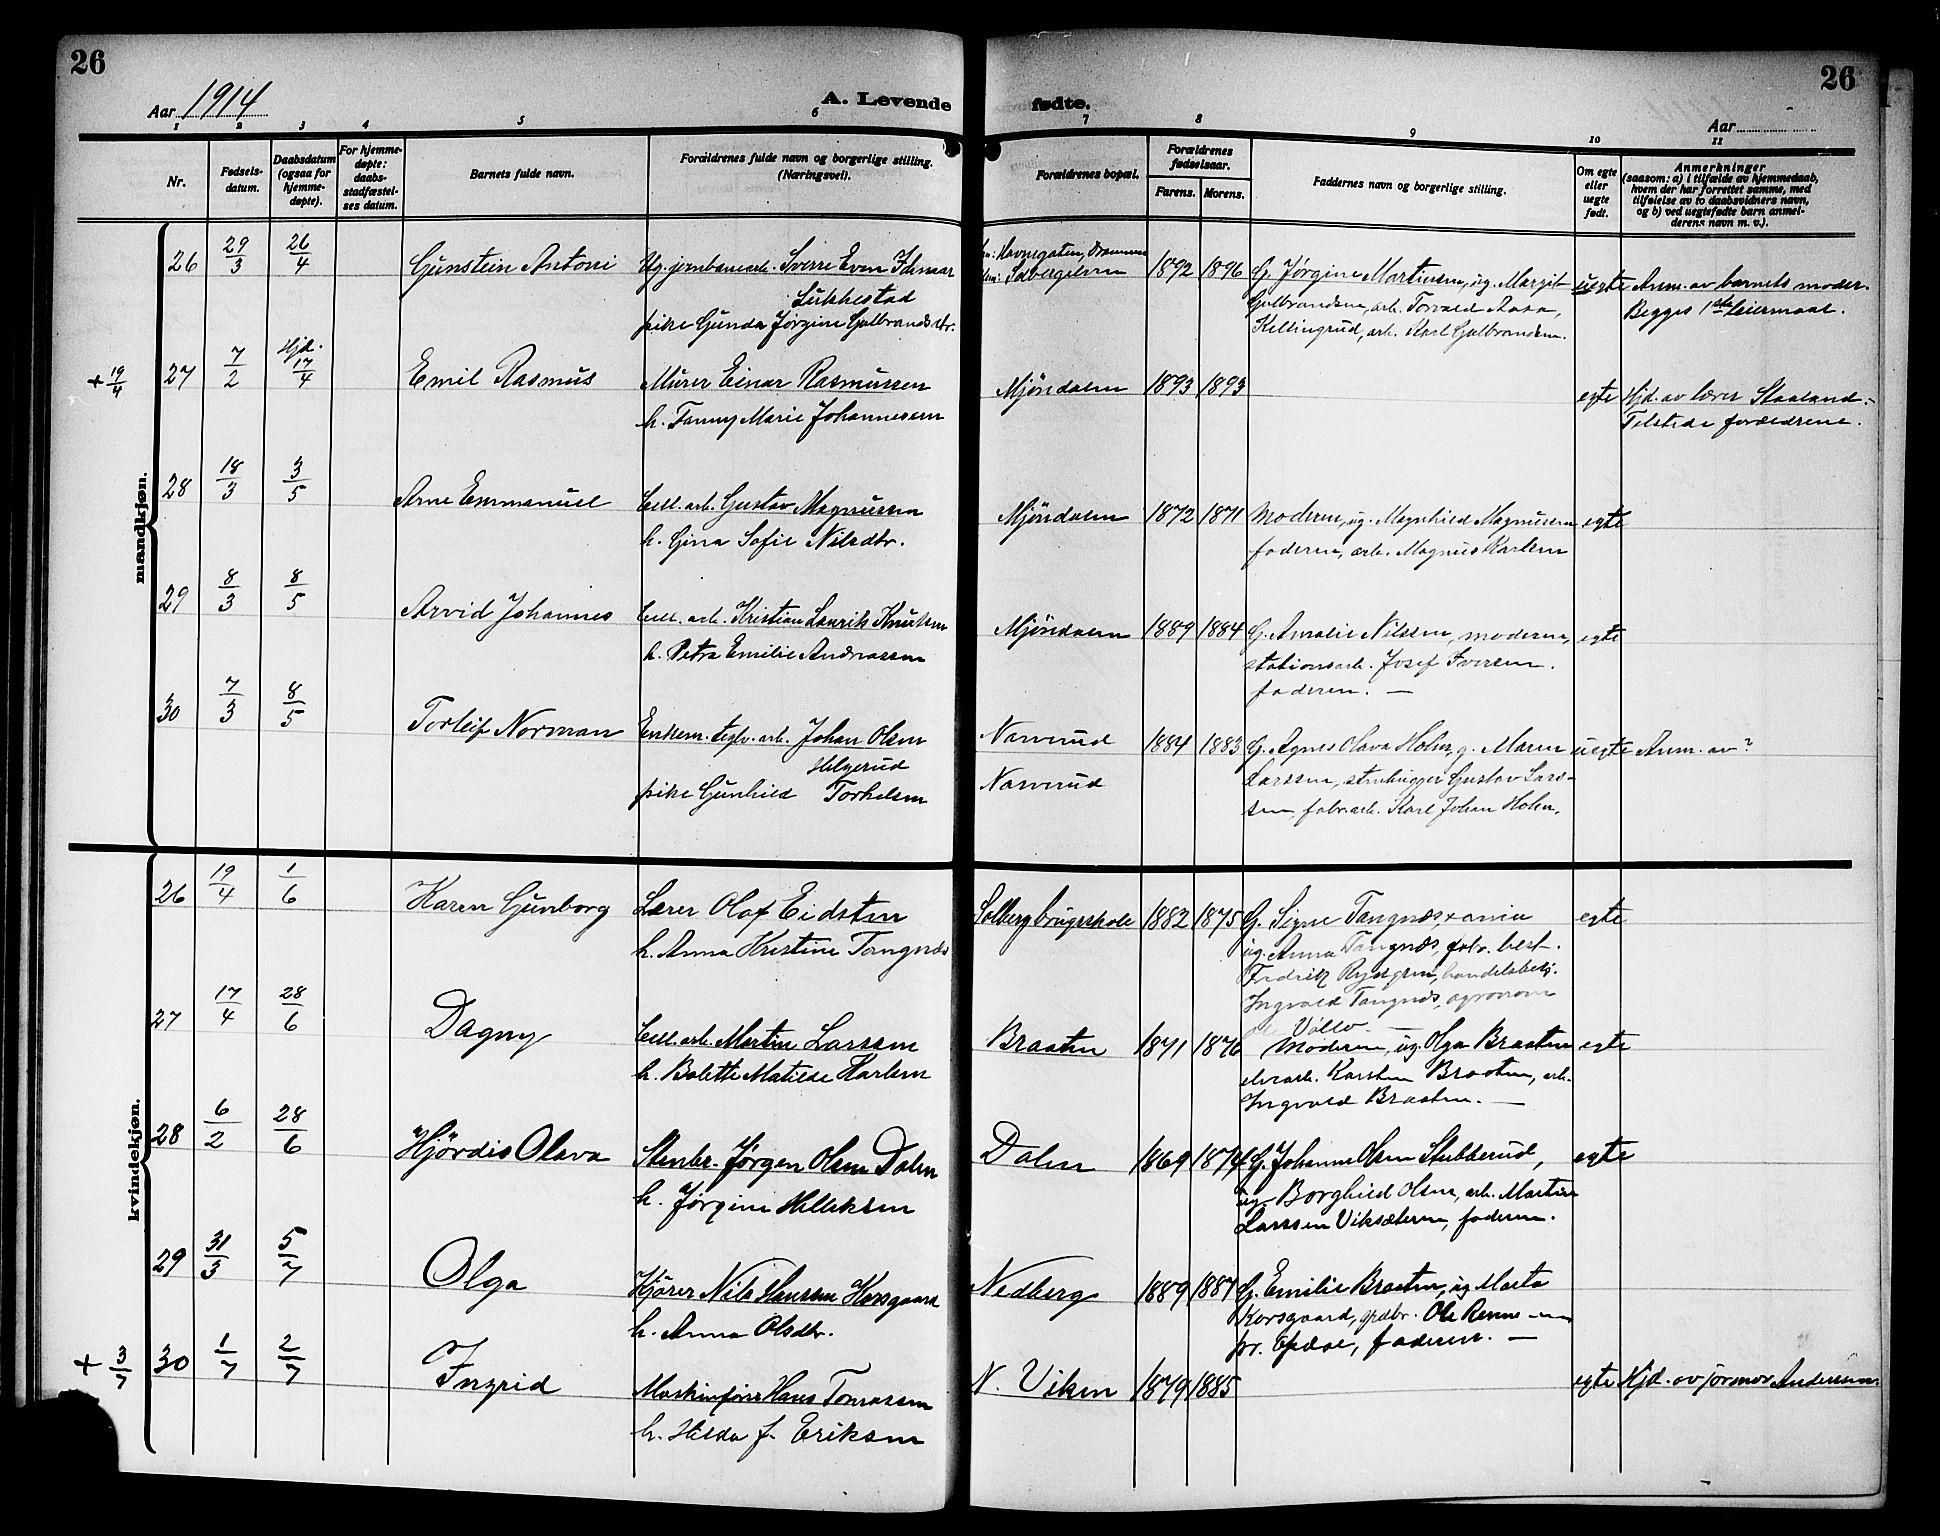 26
26
Aar 1914
A. Levende
fødte.
Aar
1 2 3 4 5 6 7 8 9 10 11
Nr.
Fødsels-
datum.
Daabsdatum
(ogsaa for
hjemme-
døpte).
For hjemme-
døpte:
daabs-
stadfæstel-
ses datum.
Barnets fulde navn.
Forældrenes fulde navn og borgerlige stilling.
(Næringsvei).
Forældrenes bopæl.
Forældrenes
fødselsaar.
Farens. Morens.
Faddernes navn og borgerlige stilling.
Om egte
eller
uegte
født.
Anmerkninger
(saasom: a) i tilfælde av hjemmedaab,
hvem der har forrettet samme, med
tilføielse av to daabsvidners navn,
og b) ved uegtefødte barn anmel-
derens navn m. v.).
mandkjøn.
26 29/3 26/4 Gunstein Antoni Ug. jernbanearb. Sverre Even
Lukkestad
pike Gunda Jørgine Gulbrandsdtr.
Havnegaten, Drammen
Solbergelven
1892 1896 G. Jørgine Martinsen, ug. Margit
Gulbrandsen, arb. Torvald Aasa,
Kellingrud, arb. Karl Gulbrandsen.
uegte Anm. av barnets moder.
Begges 1ste leiermaal.
+ 19/4 27 7/2 Hjd. 17/4 Emil Rasmus Murer Einar Rasmussen
h. Fanny Marie Johannessen
Mjöndalen 1893 1893 egte Hjd. av lærer Staaland.
Tilstede forældrene.
28 18/3 3/5 Arne Emmanuel Cell. arb. Gustav Magnussen
h. Gina Sofie Nilsdtr.
Mjöndalen 1872 1871 Moderen, ug. Magnhild Magnussen egte
faderen, arb. Magnus Karlsen
29 8/3 8/5 Arvid Johannes Cell. arb. Kristian Laurits Knutsen
h. Petra Emilie Andreassen
Mjöndalen 1889 1884 G. Amalie Nilssen, moderen, egte
stationsarb. Josef Iversen.
faderen. —
30 7/3 8/5 Torleif Norman Enkem. teglv. arb. Johan Olsen
Helgerud
pike Gunhild Torkelsen
Narverud
Narverud
1884 1883 G. Agnes Olava Holm, g. Maren uegte Anm. av?
Larssen, stenhugger Gustav Lars-
sen, fabr. arb. Karl Johan Holm.
kvindekjøn.
26 19/4 1/6 Karen Gunborg Lærer Olaf Eidsten
h. Anna Kristine Tangnæs
Solbergbrugsskole 1882 1875 G. Signe Tangnæs, x.ania egte
ug. Anna Tangnæs, fabr. best.
Fredrik Rydgren, handelsbetj.
Ingvald Tangnæs, agronom
Vollo. —
27 17/4 28/6 Dagny Cell. arb. Martin Larssen
h. Bolette Matilde Karlsen
Braaten 1871 1876 Moderen, ug. Olga Braaten egte
elvearb. Karsten Braaten, arb.
Ingvald Braaten. —
28 6/2 28/6 Hjördis Olava Stenbr. Jørgen Olsen Dalen
h. Jørgine Helleksen
Dalen 1869 1874 G. Johanne Olsen Stubberud, egte
ug. Borghild Olsen, arb. Martin
Larssen Viksæteren, faderen.
29 31/3 5/7 Olga Kjører Nils Hansen Korsgaard
h. Anna Olsdtr.
Nedberg 1889 1887 G. Emilie Braaten, ug. Marta
Korsgaard, grdbr. Ole Renne
pr. Opdal, faderen. —
+ 3/7 30 1/7 2/7 Ingrid Maskinfører Hans Tomassen
h. Hilda f. Eriksen
N. Viken 1879 1885 egte Hjd. av jormor Andersen